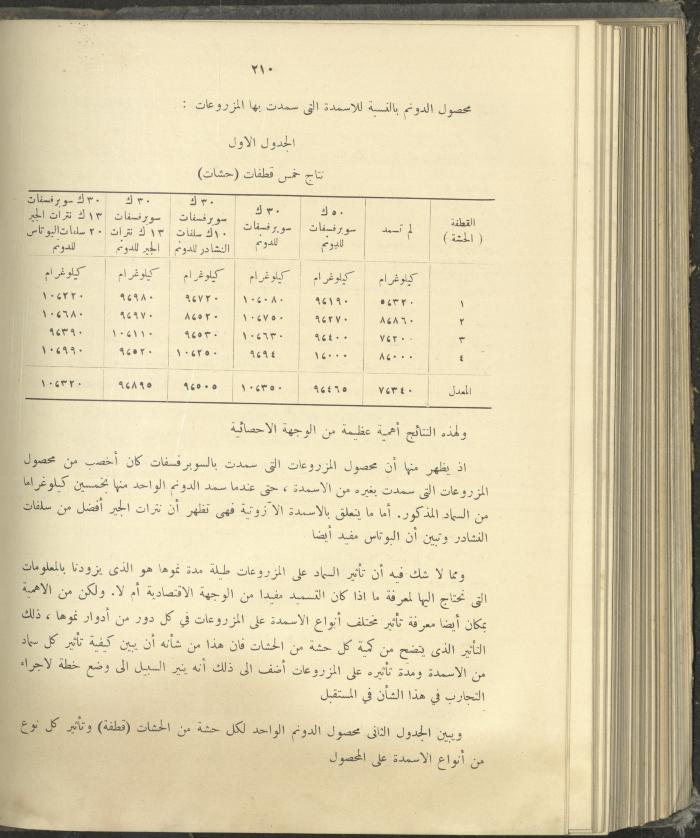 ٢١٠
محصول الدونم بالنسبة للاسمدة التى سمدت بها المزروعات :
الجدول الاول
نتاج خمس قطفات (حشات)
القطفة ( الحشة ) | لم تسمد | ٥٠ ك سوبرفسفات للدونم | ٣٠ ك سوبرفسفات للدونم | ٣٠ ك سوبرفسفات ١٠ ك سلفات النشادر للدونم | ٣٠ ك سوبرفسفات ١٣ ك نترات الجير للدونم | ٣٠ ك سوبرفسفات ١٣ ك نترات الجير ٢٠ سلفات البوتاس للدونم
كيلوغرام | كيلوغرام | كيلوغرام | كيلوغرام | كيلوغرام | كيلوغرام
١ | ٥،٣٢٠ | ٩،١٩٠ | ١٠،٠٨٠ | ٩،٧٢٠ | ٩،٩٨٠ | ١٠،٢٢٠
٢ | ٨،٨٦٠ | ٩،٢٧٠ | ١٠،٧٥٠ | ٨،٥٢٠ | ٩،٩٧٠ | ١٠،٦٨٠
٣ | ٧،٢٠٠ | ٩،٤٠٠ | ١٠،٦٣٠ | ٩،٥٣٠ | ١٠،١١٠ | ٩،٣٩٠
٤ | ٨،٠٠٠ | ١،٠٠٠ | ٩،٩٤ | ١٠،٢٥٠ | ٩،٥٢٠ | ١٠،٩٩٠
المعدل | ٧،٣٤٠ | ٩،٤٦٥ | ١٠،٣٥٠ | ٩،٥٠٥ | ٩،٨٩٥ | ١٠،٣٢٠
ولهذه النتائج أهمية عظيمة من الوجهة الاحصائية
اذ يظهر منها أن محصول المزروعات التى سمدت بالسوبرفسفات كان أخصب من محصول
المزروعات التى سمدت بغيره من الاسمدة ، حتى عندما سمد الدونم الواحد منها بخمسين كيلوغراما
من السماد المذكور. أما ما يتعلق بالاسمدة الآزوتية فهى تظهر أن نترات الجير أفضل من سلفات
النشادر وتبين أن البوتاس مفيد أيضا
ومما لا شك فيه أن تأثير السماد على المزروعات طيلة مدة نموها هو الذى يزودنا بالمعلومات
التى نحتاج اليها لمعرفة ما اذا كان التسميد مفيدا من الوجهة الاقتصادية أم لا. ولكن من الاهمية
بمكان أيضا معرفة تأثير مختلف أنواع الاسمدة على المزروعات في كل دور من أدوار نموها ، ذلك
التأثير الذى يتضح من كمية كل حشة من الحشات فان هذا من شأنه أن يبين كيفية تأثير كل سماد
من الاسمدة ومدة تأثيره على المزروعات أضف الى ذلك أنه ينير السبيل الى وضع خطة لاجراء
التجارب في هذا الشأن في المستقبل
ويبين الجدول الثانى محصول الدونم الواحد لكل حشة من الحشات (قطفة) وتأثير كل نوع
من أنواع الاسمدة على المحصول